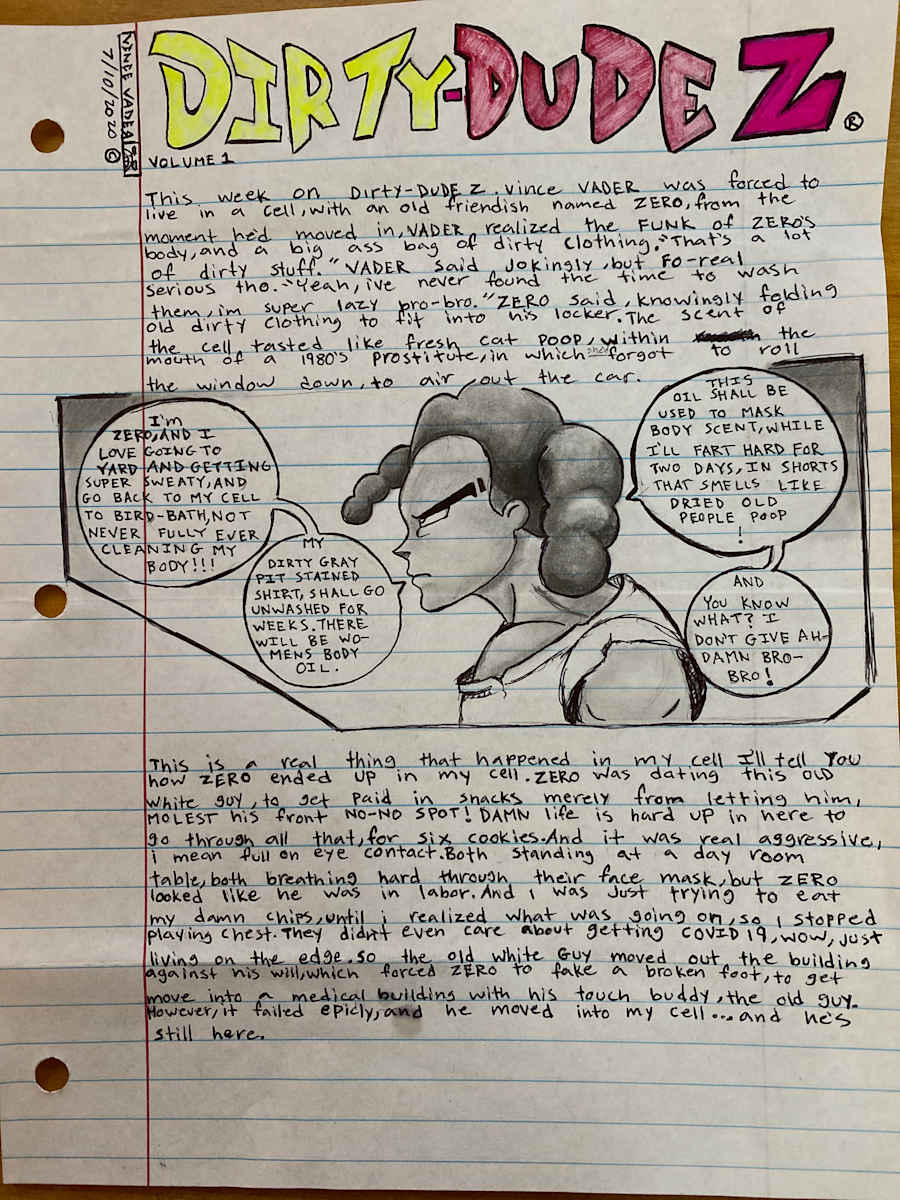 DIRTY-DUDE Z ®
VINCE VADER
7/10/2020 ©
VOLUME 1
This week on Dirty-DUDE Z. Vince VADER was forced to
live in a cell, with an old friendish named ZERO, from the
moment he'd moved in, VADER realized the FUNK of ZERO'S
body, and a big ass bag of dirty clothing. "That's a lot
of dirty stuff." VADER said jokingly, but FO-real
serious tho. "Yeah, ive never found the time to wash
them, im super lazy bro-bro." ZERO said, knowingly folding
old dirty clothing to fit into his locker. The scent of
the cell tasted like fresh cat POOP, within the
mouth of a 1980's prostitute, in which she forgot to roll
the window down, to air out the car.
I'm
ZERO, AND I
LOVE GOING TO
YARD AND GETTING
SUPER SWEATY, AND
GO BACK TO MY CELL
TO BIRD-BATH, NOT
NEVER FULLY EVER
CLEANING MY
BODY!!!
MY
DIRTY GRAY
PIT STAINED
SHIRT, SHALL GO
UNWASHED FOR
WEEKS. THERE
WILL BE WO-
MENS BODY
OIL.
THIS
OIL SHALL BE
USED TO MASK
BODY SCENT, WHILE
I'LL FART HARD FOR
TWO DAYS, IN SHORTS
THAT SMELLS LIKE
DRIED OLD
PEOPLE POOP
!
AND
YOU KNOW
WHAT? I
DON'T GIVE AH-
DAMN BRO-
BRO!
This is a real thing that happened in my cell I'll tell You
how ZERO ended UP in my cell. ZERO was dating this OLD
white guy, to get paid in snacks merely from letting him,
MOLEST his front NO-NO SPOT! DAMN life is hard UP in here to
go through all that, for six cookies. And it was real aggressive,
i mean full on eye contact. Both standing at a day room
table, both breathing hard through their face mask, but ZERO
looked like he was in labor. And i was just trying to eat
my damn chips, until i realized what was going on, so i stopped
playing chest. They didn't even care about getting COVID 19, wow, just
living on the edge. so the old white GUY moved out the building
against his will, which forced ZERO to fake a broken foot, to get
move into a medical building with his touch buddy, the old guy.
However, it failed epicly, and he moved into my cell... and he's
still here.